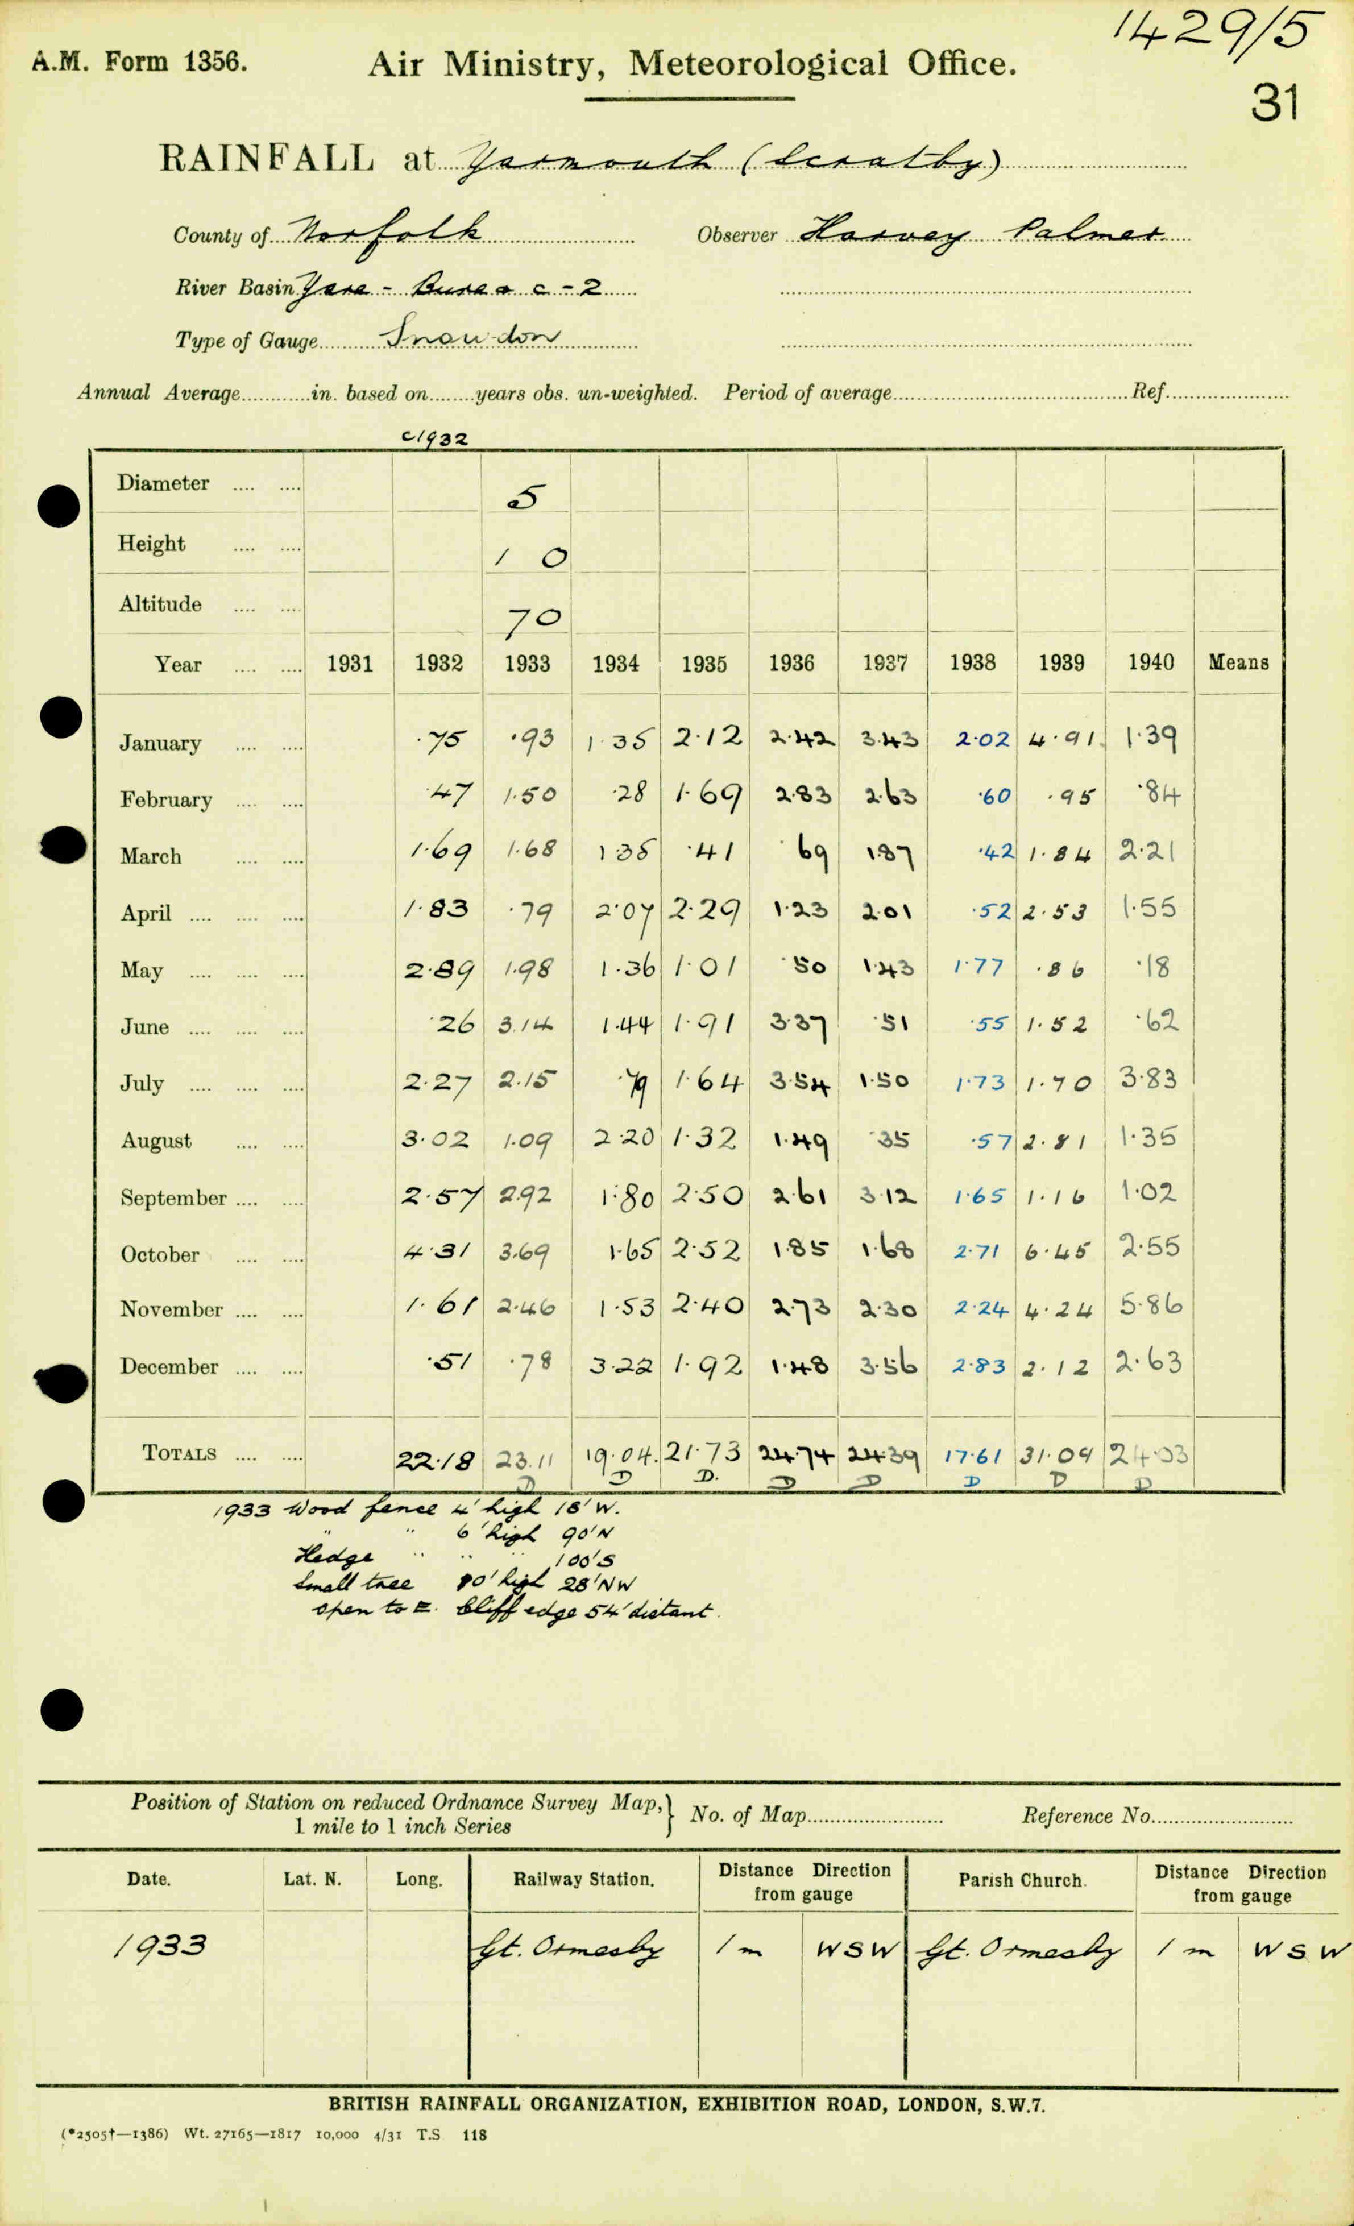 1429/5
A.M. Form 1356. Air Ministry, Meteorological Office.
31
RAINFALL at Yarmouth (Scratby)
County of Norfolk Observer Harvey Palmer
River Basin Yare - Bure & c - 2
Type of Gauge Snowdon
Annual Average in. based on years obs. un-weighted. Period of average Ref.
c1932
Diameter 5
Height 1 0
Altitude 70
Year 1931 1932 1933 1934 1935 1936 1937 1938 1939 1940 Means
January .75 .93 1.35 2.12 2.42 3.43 2.02 4.91 1.39
February .47 1.50 .28 1.69 2.83 2.63 .60 .95 .84
March 1.69 1.68 1.35 .41 .69 1.87 .42 1.84 2.21
April 1.83 .79 2.07 2.29 1.23 2.01 .52 2.53 1.55
May 2.89 1.98 1.36 1.01 .50 1.43 1.77 .86 .18
June .26 3.14 1.44 1.91 3.37 .51 .55 1.52 .62
July 2.27 2.15 .79 1.64 3.54 1.50 1.73 1.70 3.83
August 3.02 1.09 2.20 1.32 1.49 .35 .57 2.81 1.35
September 2.57 2.92 1.80 2.50 2.61 3.12 1.65 1.16 1.02
October 4.31 3.69 1.65 2.52 1.85 1.68 2.71 6.45 2.55
November 1.61 2.46 1.53 2.40 2.73 2.30 2.24 4.24 5.86
December .51 .78 3.22 1.92 1.48 3.56 2.83 2.12 2.63
TOTALS 22.18 23.11 19.04. 21.73 24.74 24.39 17.61 31.09 24.03
D D D. D D D D D
1933 Wood fence 4' high 18' W.
" " 6' high 90' N
Hedge " " " 100' S
Small tree 10' high 28' NW
open to E. Cliff edge 54' distant.
Position of Station on reduced Ordnance Survey Map,} No. of Map Reference No.
1 mile to 1 inch Series
Date. Lat. N. Long. Railway Station. Distance Direction from gauge Parish Church. Distance Direction from gauge
1933 Gt. Ormesby 1 m WSW Gt. Ormesby 1 m WSW
BRITISH RAINFALL ORGANIZATION, EXHIBITION ROAD, LONDON, S.W.7.
(*2505†—1386) Wt. 27165—1817 10,000 4/31 T.S. 118